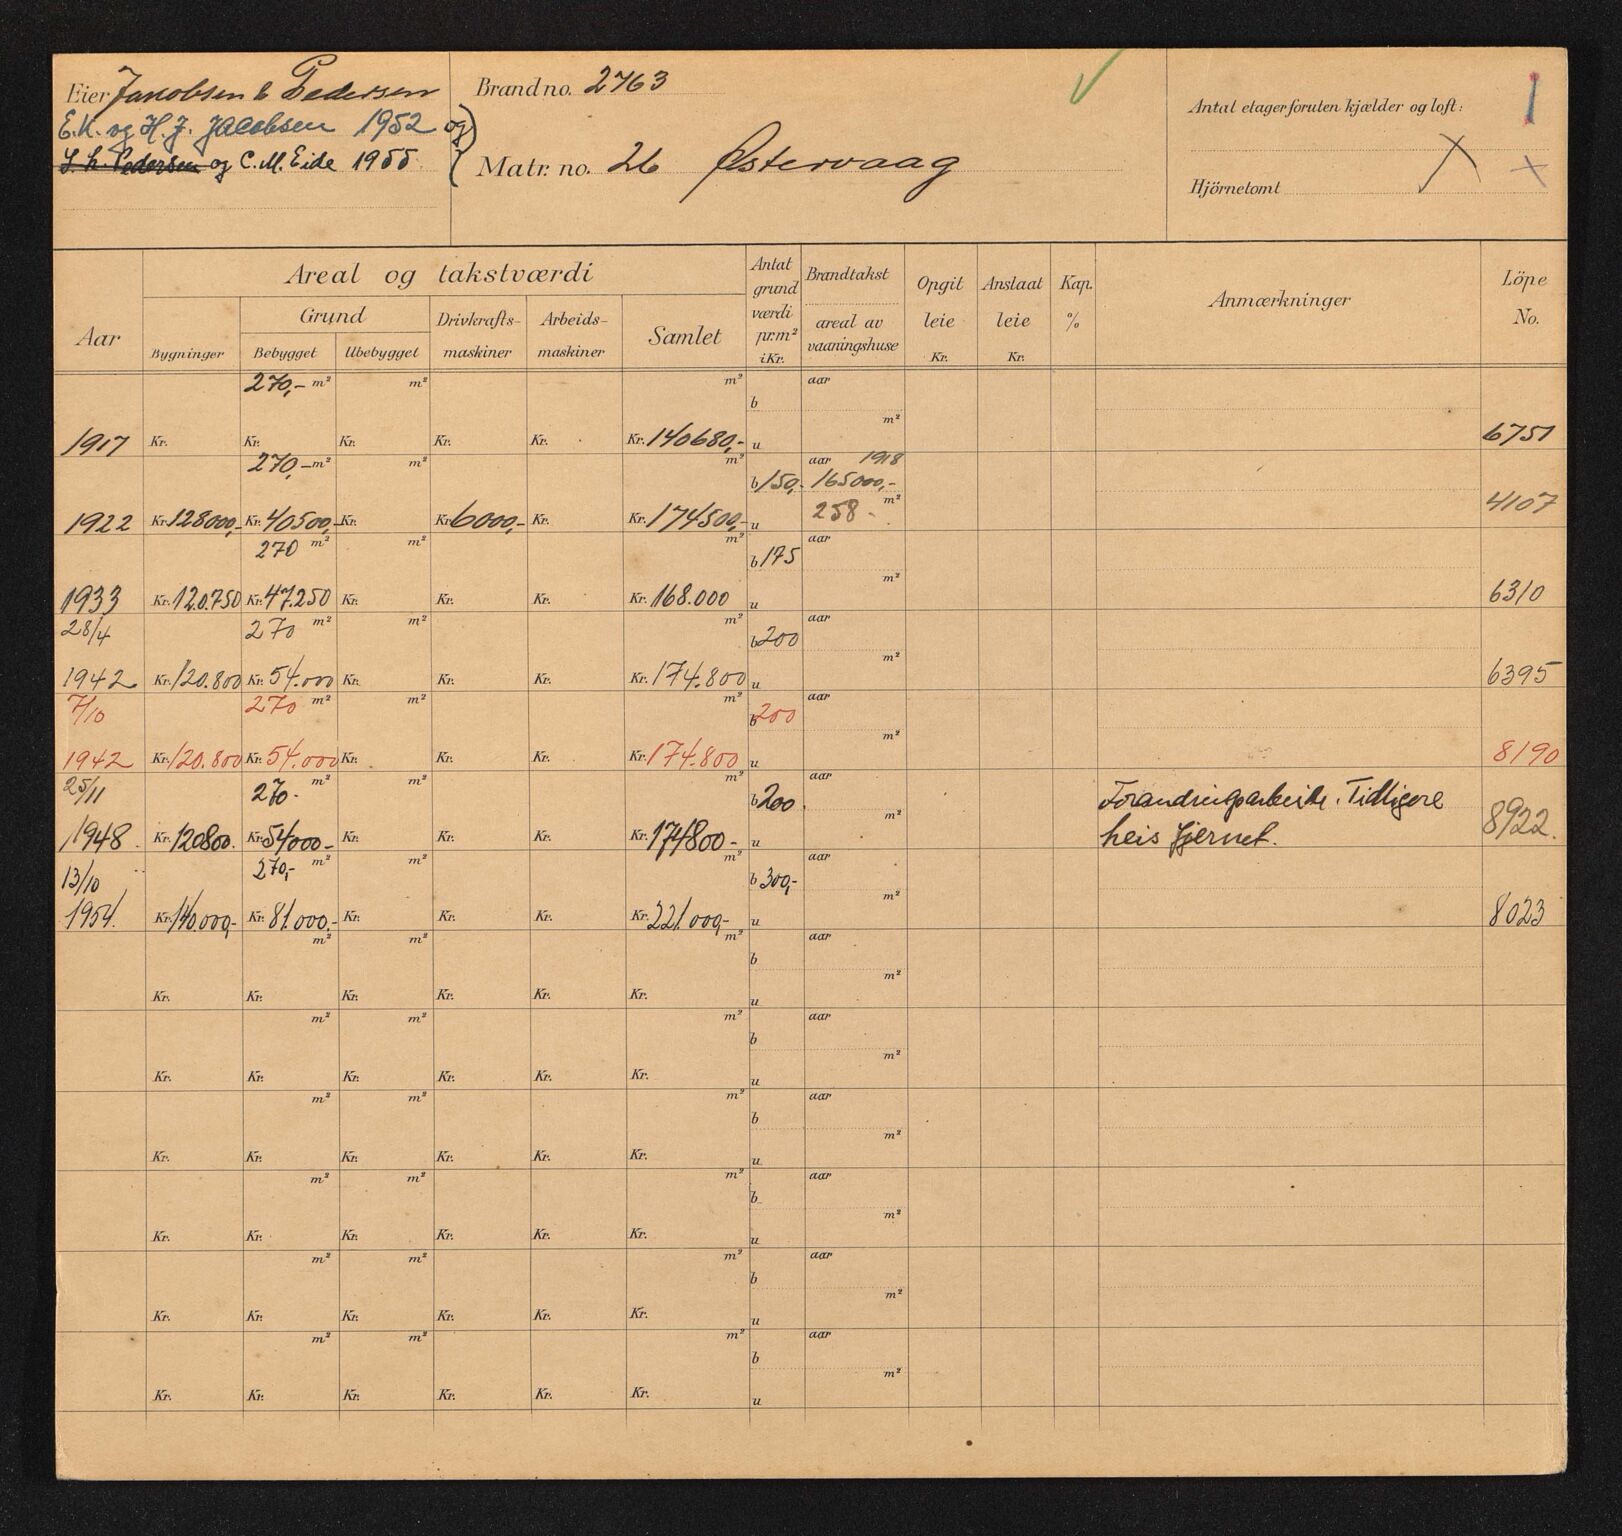 Eier Jacobsen & Pedersen
E.K. og H.J. Jacobsen 1952 og
S. L. Pedersen og C.M. Eide 1955
Brand no. 2763
Matr. no. 26 Østervaag
Antal etager foruten kjælder og loft: 1
Hjörnetomt X X
Aar
Areal og takstværdi
Bygninger
Grund
Bebygget
Ubebygget
Drivkrafts-maskiner
Arbeids-maskiner
Samlet
Antat grund værdi pr. m² i Kr.
Brandtakst
areal av vaaningshuse
Opgit leie Kr.
Anslaat leie Kr.
Kap. %
Anmærkninger
Löpe No.
270,- m² m² m² aar
b
m²
1917 Kr. Kr. Kr. Kr. Kr. Kr. 140680,- u 6751
270,- m² m² m² aar 1918
b 150,- 165000,-
m²
1922 Kr. 128000,- Kr. 40500,- Kr. Kr. 6000,- Kr. Kr. 174500,- u 258 - 4107
270 m² m² m² aar
b 175
m²
1933 Kr. 120.750 Kr. 47.250 Kr. Kr. Kr. Kr. 168.000 u 6310
28/4 270 m² m² m² aar
b 200
m²
1942 Kr. 120.800 Kr. 54.000 Kr. Kr. Kr. Kr. 174.800 u 6395
7/10 270 m² m² m² aar
b 200
m²
1942 Kr. 120.800 Kr. 54.000 Kr. Kr. Kr. Kr. 174.800 u 8190
25/11 270.- m² m² m² aar
b 200 Forandringsarbeide. Tidligere
m²
1948 Kr. 120800. Kr. 54000- Kr. Kr. Kr. Kr. 174800- u heis fjernet. 8922.
13/10 270,- m² m² m² aar
b 300,-
m²
1954. Kr. 140.000,- Kr. 81.000,- Kr. Kr. Kr. Kr. 221.000,- u 8023
m² m² m² aar
b
m²
Kr. Kr. Kr. Kr. Kr. Kr. u
m² m² m² aar
b
m²
Kr. Kr. Kr. Kr. Kr. Kr. u
m² m² m² aar
b
m²
Kr. Kr. Kr. Kr. Kr. Kr. u
m² m² m² aar
b
m²
Kr. Kr. Kr. Kr. Kr. Kr. u
m² m² m² aar
b
m²
Kr. Kr. Kr. Kr. Kr. Kr. u
m² m² m² aar
b
m²
Kr. Kr. Kr. Kr. Kr. Kr. u